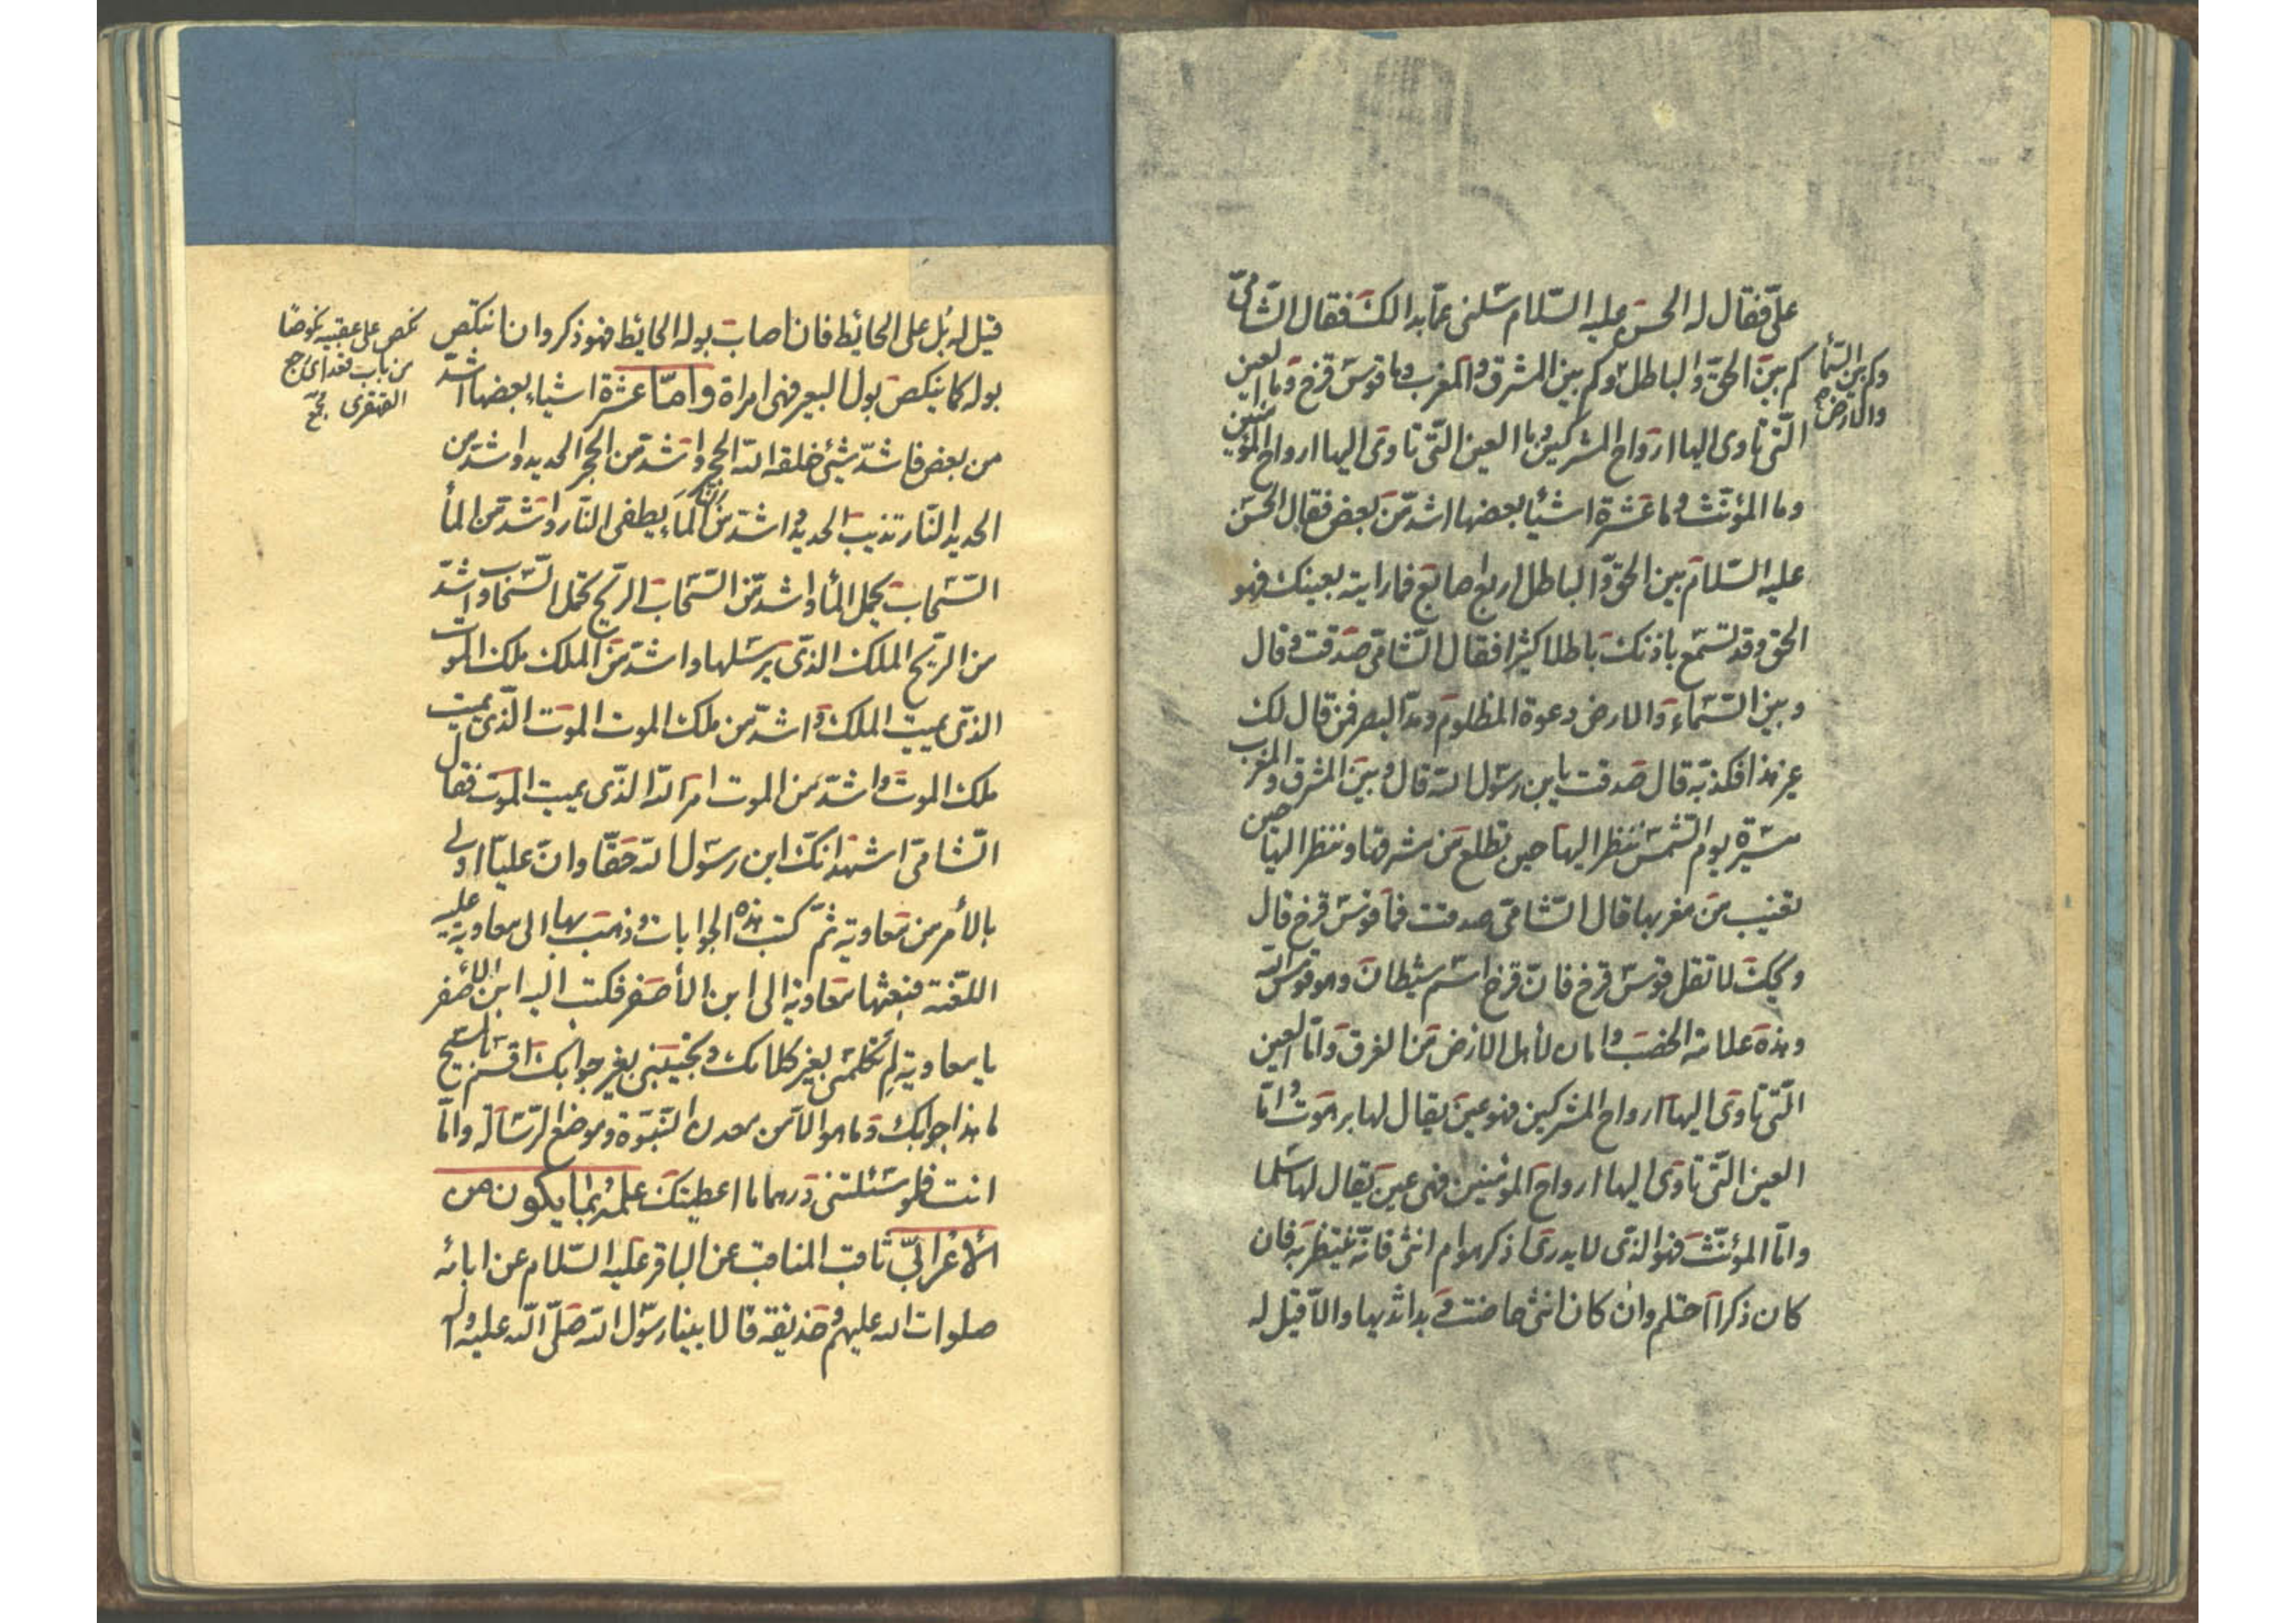 علىّ فقال له الحسن عليه السّلام سلنى عمّا بدا لك فقال الشّامىّ
كم بين الحقّ والباطل وكم بين المشرق والمغرب وما قوس قزح وما العين
وكم بين السّمآ
والارض
الّتى تاوى اليها ارواح المشركين وما العين الّتى تاوى اليها ارواح المؤمنين
وما المؤنّث وما عشرة اشيآ بعضها اشدّ من بعض فقال الحسن
عليه السّلام بين الحقّ والباطل اربع اصابع فما رايته بعينك فهو
الحق وقد تسمع باذنك باطلا كثيرا فقال الشّامى صدقت وقال
وبين السّمآء والارض دعوة المظلوم ومدّ البصر فمن قال لك
غير هذا فكذبه قال صدقت يابن رسول الله قال وبين المشرق والمغرب
مسيرة يوم الشّمس تنظر اليها حين تطلع من مشرقها وتنظر اليها حين
تغيب من مغربها قال الشّامى صدقت فما قوس قزح قال
ويحك لا تقل قوس قزح فانّ قزح اسم شيطان وهو قوس الله
وهذه علامة الخصب وامان لأهل الارض من الغرق وامّا العين
الّتى تاوى اليها ارواح المشركين فهو عين يقال لها برهوت وامّا
العين الّتى تاوى اليها ارواح المؤمنين فهى عين يقال لها سلما
وامّا المؤنّث فهو الذى لا يدرى اذكر هو ام انثى فانّه ينتظر به فان
كان ذكرا احتلم وان كان انثى حاضت وبدا ثديها والاّ قيل له
قيل له بُل على الحائط فان اصاب بوله الحائط فهو ذكر وان انتكص
نكص على عقبيه نكوصًا
من باب قعد اى رجع
القهقرى مجمع
بوله كما ينكص بول البعير فهى امراة وامّا عشرة اشياء بعضها اشدّ
من بعض فاشدّ شيئ خلقه الله الحجر واشد من الحجر الحديد واشد من
الحديد النّار تذيب الحديد واشد من النّار المآء يطفى النّار واشد من المآ
السّحاب يحمل المآ واشدّ من السّحاب الرّيح تحمل السّحاب واشدّ
من الرّيح الملك الّذى يرسلها واشدّ من الملك ملك الموت
الّذى يميت الملك واشدّ من ملك الموت الموت الّذى يميت
ملك الموت واشدّ من الموت امر الله الّذى يميت الموت فقال
الشّامى اشهد انّك ابن رسول الله حقّا وانّ عليّا اولى
بالأمر من معاوية ثمّ كتب هذه الجوابات وذهب بها الى معاوية عليه
اللعنة فبعثها معاوية الى ابن الأصفر فكتب اليه ابن الأصفر
يا معاوية لِمَ تكلّمنى بغير كلامك وتجيبنى بغير جوابك اقسم بالمسيح
ما هذا جوابك وما هو الاّ من معدن النّبوّة وموضع الرّسالة وامّا
انت فلو سئلتنى درهما ما اعطيتك علمه بما يكون من
الأعرابىّ ثاقب المناقب عن الباقر عليه السّلام عن ابائه
صلوات الله عليهم وحذيفة قالا بينا رسول الله صلّى الله عليه وآله